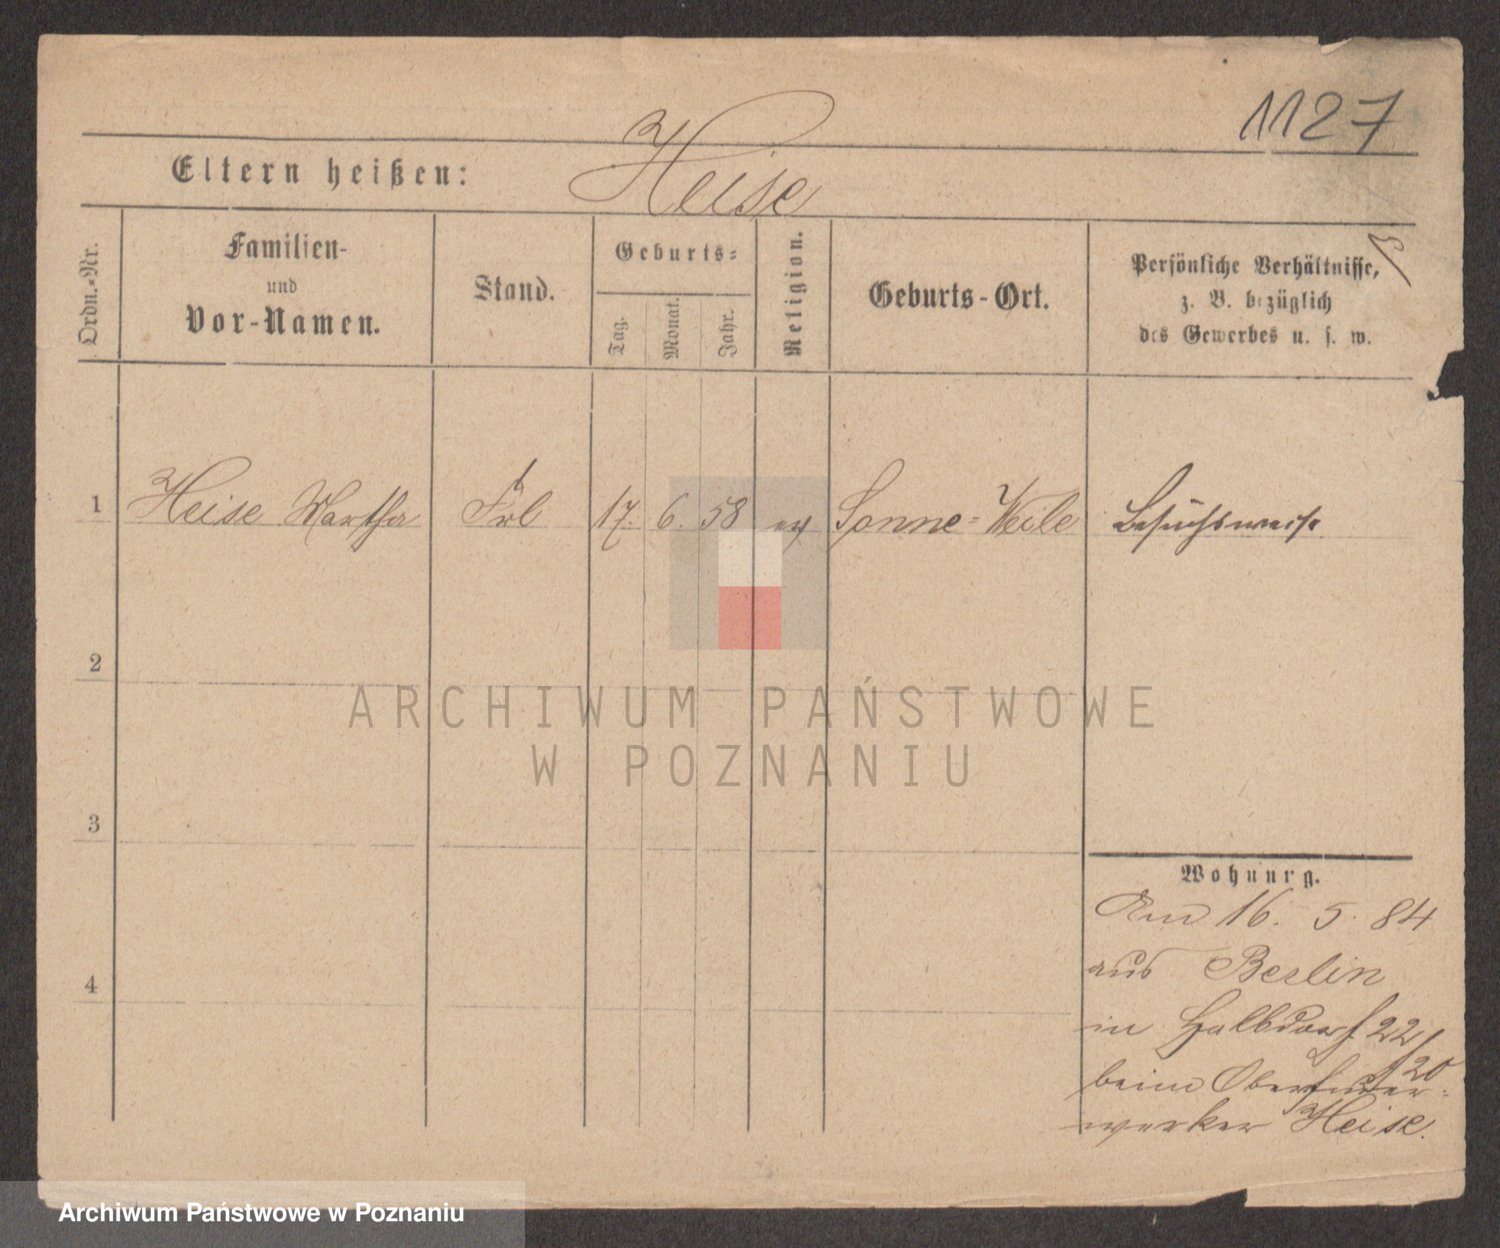 1127
Eltern heißen: Heise
Ordn.-Nr.
Familien-
und
Vor-Namen.
Stand.
Geburts-
Tag.
Monat.
Jahr.
Religion.
Geburts-Ort.
Persönliche Verhältnisse,
z. B. bezüglich
des Gewerbes u. s. w.
1 Heise Martha Frl 17. 6. 58 ev Sonne-Weile Besuchsweise.
2
ARCHIWUM PAŃSTWOWE
W POZNANIU
3
4
Wohnung.
Am 16. 5. 84
aus Berlin
in Halbdorf 22/20
beim Oberfeuer-
werker Heise.
Archiwum Państwowe w Poznaniu